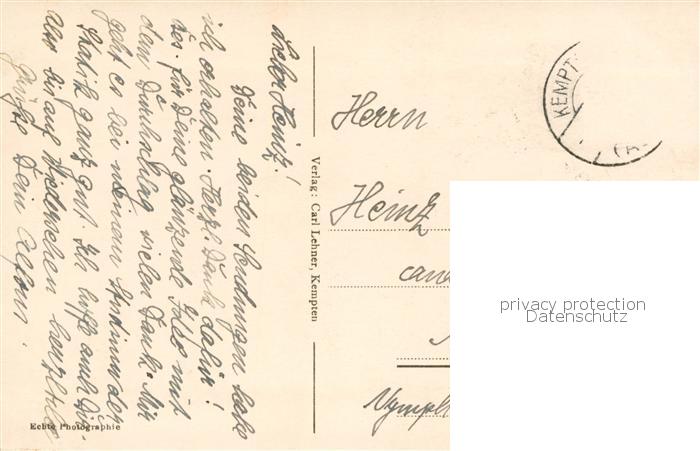 Lieber Heinz!
Deine beiden Sendungen habe
ich erhalten. Herzl. Dank dafür!
Für Deine glänzende Idee mit
dem Durchschlag vielen Dank. Mir
geht es bei meinem Studium der
Statik ganz gut. Ich hoffe auch Dir.
Nun bis auf Wiedersehen herzliche
Grüße Dein Alfons.
Echte Photographie
Verlag: Carl Lehner, Kempten
Herrn
Heinz
cand
Nymph
KEMPT
privacy protection
Datenschutz